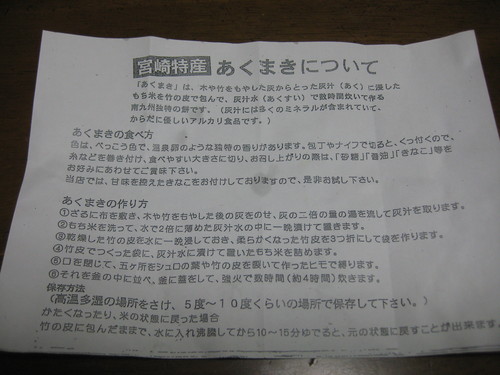 宮崎特産 あくまきについて
「あくまき」は、木や竹をもやした灰からとった灰汁（あく）に浸した
もち米を竹の皮で包んで、灰汁水（あくすい）で数時間炊いて作る
南九州独特の餅です。（灰汁には多くのミネラルが含まれていて、
からだに優しいアルカリ食品です。）
あくまきの食べ方
色は、べっこう色で、温泉卵のような独特の香りがあります。包丁やナイフで切ると、くっ付くので、
糸などを巻き付け、食べやすい大きさに切り、お召し上がりの際は、「砂糖」「醤油」「きなこ」等を
お好みにあわせてご賞味下さい。
当店では、甘味を控えたきなこをお付けしておりますので、是非お試し下さい。
あくまきの作り方
①ざるに布を敷き、木や竹をもやした後の灰をのせ、灰の二倍の量の湯を流して灰汁を取ります。
②もち米を洗って、水で2倍に薄めた灰汁水の中に一晩漬けて置きます。
③乾燥した竹の皮を水に一晩漬しておき、柔らかくなった竹皮を3つ折にして袋を作ります。
④竹皮でつくった袋に、灰汁水に漬けて置いたもち米を詰めます。
⑤口を閉じて、五ヶ所をシュロの葉や竹の皮を裂いて作ったヒモで縛ります。
⑥それを釜の中に並べ、釜に蓋をして、強火で数時間（約4時間）炊きます。
保存方法
（高温多湿の場所をさけ、5度〜10度くらいの場所で保存して下さい。）
かたくなったり、米の状態に戻った場合
竹の皮に包んだままで、水に入れ沸騰してから10〜15分ゆでると、元の状態に戻すことが出来ます。